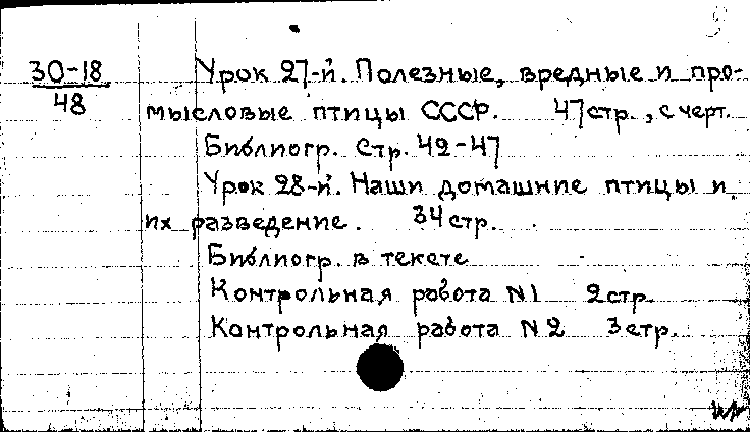 30-18
48
Урок 27-й. Полезные, вредные и про-
мысловые птицы СССР. 47 стр., с черт.
Библиогр. стр. 42-47
Урок 28-й. Наши домашние птицы и
их разведение. 34 стр.
Библиогр. в тексте
Контрольная работа N1 2 стр.
Контрольная работа N 2 3 стр.